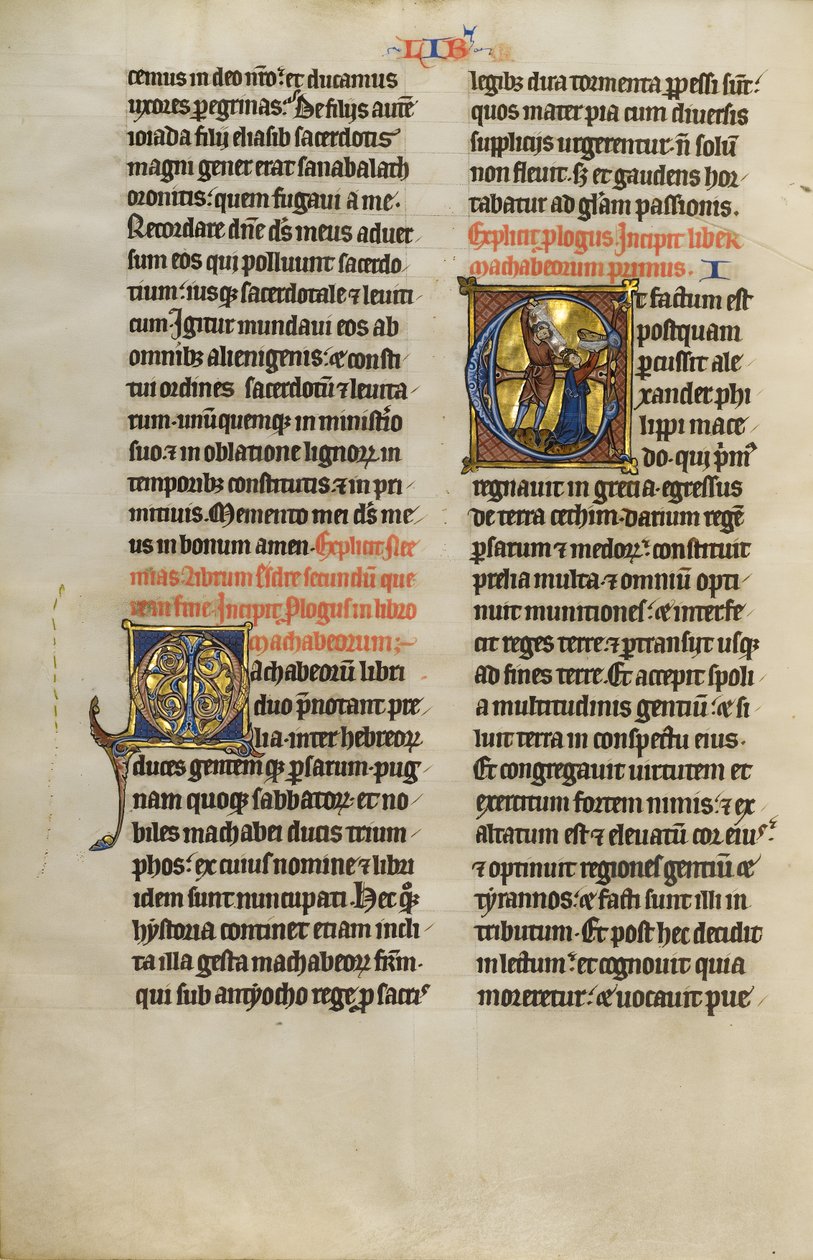 LIB
cemus in deo nr̄o. et ducamus
uxores peregrinas. De filijs autē
ioiada filij eliasib sacerdotis
magni gener erat sanabalath
oronitis. quem fugavi a me.
Recordare dn̄e ds̄ meus adver
sum eos qui polluunt sacerdo
tium. iusqꝫ sacerdotale ⁊ leviti
cum. Igitur mundavi eos ab
omnibꝫ alienigenis. et consti
tui ordines sacerdotū ⁊ levita
rum. unūquemqꝫ in ministr̄io
suo. ⁊ in oblatione lignoꝝ in
temporibꝫ constitutis. ⁊ in pri
mitivis. Memento mei ds̄ me
us in bonum amen. Explicit Nee
mias. librum Esdre secundū que
rem fine. Incipit Plogus in libro
Machabeorum
Machabeorū libri
duo p̄notant pre
lia. inter hebreoꝝ
duces gentemqꝫ ꝑsarum. pug
nam quoqꝫ sabbatoꝝ. et no
biles machabei ducis trium
phos. ex cuius nomine ⁊ libri
idem sunt nuncupati. Hec qͦꝫ
hystoria continet etiam incli
ta illa gesta machabeoꝝ fr̄m.
qui sub antyocho rege ꝓ sacris
legibꝫ dira tormenta ꝑpessi sūt.
quos mater pia cum diversis
supplicijs urgerentur. n̄ solū
non flevit. sꝫ et gaudens hor
tabatur ad glām passionis.
Explicit ꝓlogus. Incipit liber
Machabeorum primus. I
Et factum est
postquam
ꝑcussit ale
xander phi
lippi mace
do. qui pͥmꝰ
regnavit in grecia. egressus
de terra cethim. darium regē
ꝑsarum ⁊ medoꝝ. constituit
prelia multa. ⁊ omniū opti
nuit munitiones. et interfe
cit reges terre. ⁊ ꝑtransijt usqꝫ
ad fines terre. Et accepit spoli
a multitudinis gentiū. et si
luit terra in conspectu eius.
Et congregavit virtutem et
exercitum fortem nimis. ⁊ ex
altatum est ⁊ elevatū cor eius.
⁊ optinuit regiones gentiū et
tyrannos. et facti sunt illi in
tributum. Et post hec decidit
in lectum. et cognovit quia
moreretur. et vocavit pue